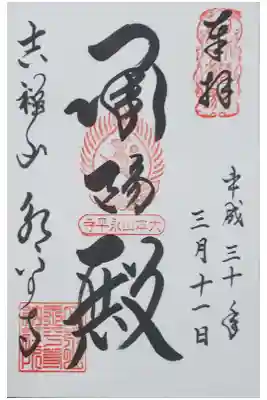 奉拝
平成三十年
三月十一日
承陽殿
大本山永平寺
吉祥山永平寺